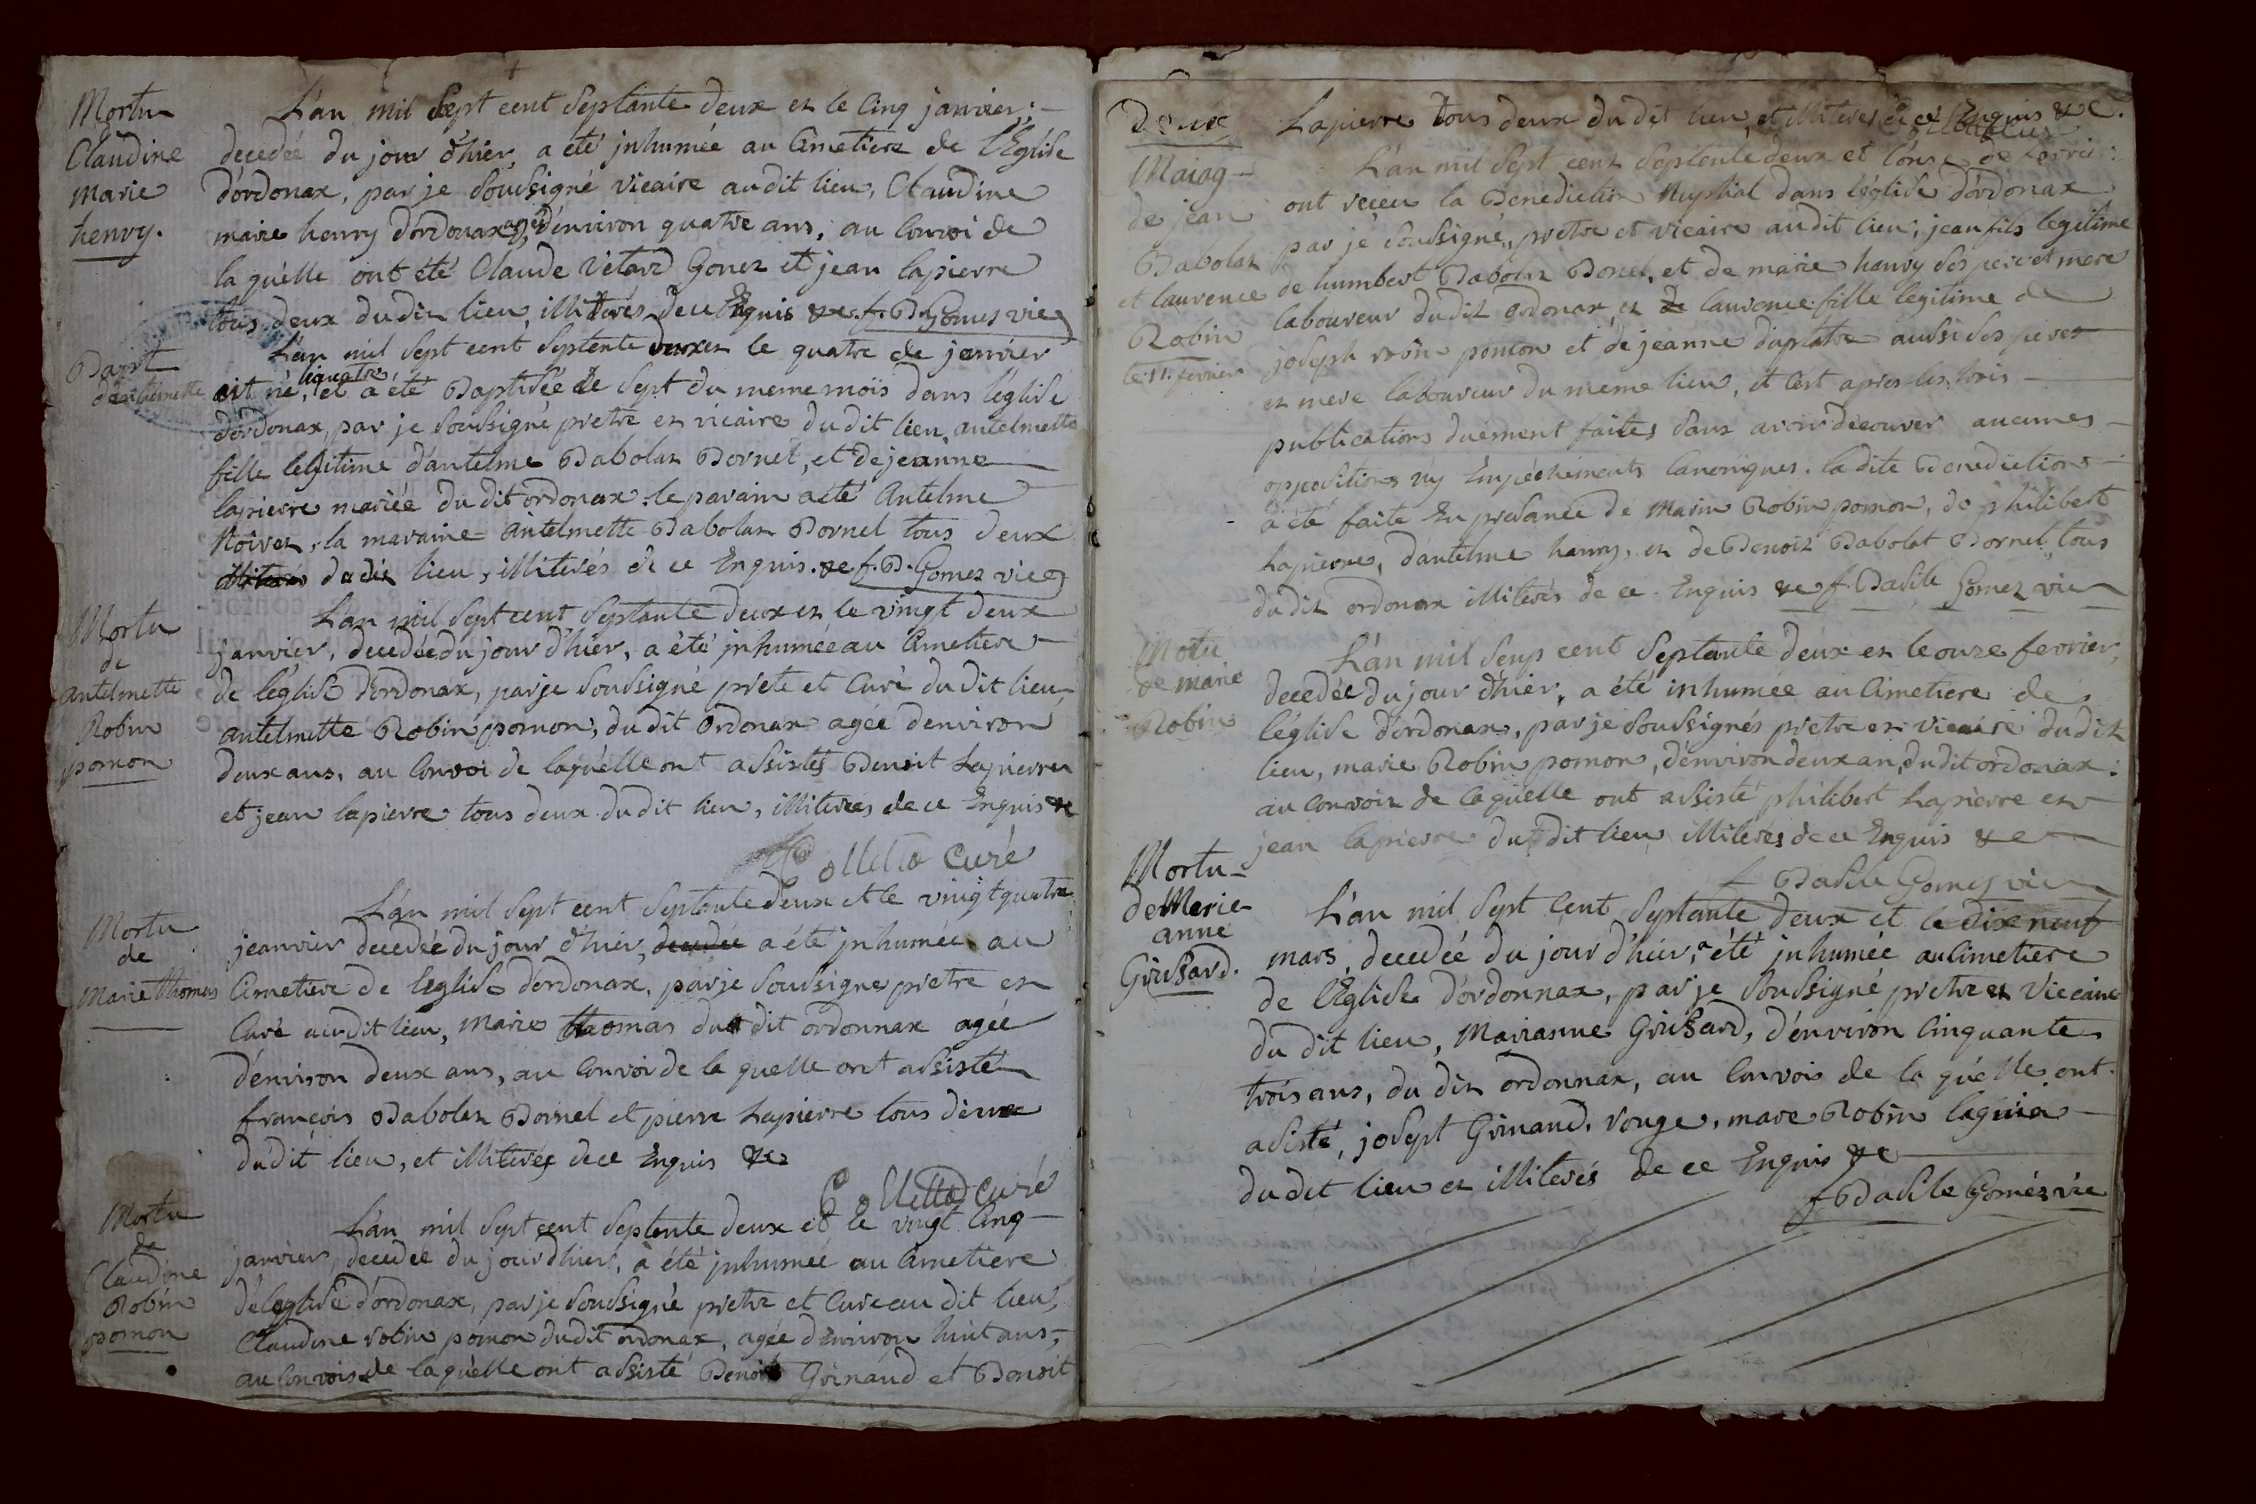 Mortu
Claudine
marie
henry.
L'an mil Sept cent Septante deux et le Cinq janvier,
decedée du jour d'hier, a été inhumée au Cimetiere de l'Eglise
d'ordonax, par je Soussigné vicaire audit lieu, Claudine
marie henry d'ordonax agée d'environ quatre ans, au Convoi de
la quelle ont été Claude vetard Gonet et jean lapierre
tous deux dudit lieu, illiterés de ce Enquis &c f. B. Gomes vic
Bapt
d'antelmette
L'an mil Sept cent Septente deux et le quatre de janvier
est né, et a été Baptisée le Sept du meme mois dans l'église
d'ordonax, par je Soussigné pretre et vicaire du dit lieu, antelmette
fille legitime d'antelme Babolat Dornel, et de jeanne
lapierre mariée du dit ordonax : le parain a été Antelme
Noiret, la maraine antelmette Babolat Dornel tous deux
illiterés dudit lieu, illiterés de ce Enquis. &c f. B. Gomez vic
Mortu
de
antelmette
Robin
pomon
L'an mil Sept cent Septante deux et le vingt deux
janvier, decedée du jour d'hier, a été inhumée au Cimetiere
de l'église d'ordonax, par je Soussigné prete et Curé du dit lieu
antelmette Robin pomon, du dit Ordonax agée denviron
deux ans, au Convoi de laquelle ont assistés Benoit Lapierre
et jean lapierre tous deux du dit lieu, illiterés de ce Enquis &c
Colletta Curé
Mortu
de
Marie Thomas
L'an mil Sept cent Septante deux et le vingt quatre
jeanvier decedée du jour d'hier, decedée a été inhumée au
Cimetiere de l'eglise d'ordonax, par je Soussigne pretre et
Curé audit lieu, Marie Thomas du dit ordonnax agée
d'environ deux ans, au Convoi de la quelle ont assisté
françois Babolat Dornel et pierre Lapierre tous deux
du dit lieu, et illiterés de ce Enquis &c
Colletta Curé
Mortu
de
Claudine
Robin
pomon
L'an mil Sept cent Septente deux et le vingt Cinq
janvier, decedée du jour d'hier, a été inhumée au Cimetiere
de l'eglise d'ordonax, par je Soussigné pretre et Cure au dit lieu,
Claudine robin pomon du dit ordonax, agée d'environ huit ans,
au Convois de laquelle ont assisté Benoit Grinand et Benoit
Deux
Lapierre tous deux du dit lieu, et illiterés de ce Enquis &c.
Maiag
de jean
Babolat
et laurence
Robin
le 11. fevrier
L'an mil Sept cent Septente deux et l'onze de fevrier
ont receu la Benediction Nuptial dans l'église d'ordonax
par je Soussigné, pretre et vicaire audit lieu, jean fils legitime
de humbert Babolat Donel, et de marie henry ses pere et mere
laboureur dudit ordonax et de laurence fille legitime de
joseph robin pomon et de jeanne dupratre aussi ses peres
et mere laboureur du meme lieu, et c'est apres les trois
publications duement faites sans avoir decouver aucunes
oppositions ny Empechements Canoniques. la dite Benediction
a été faite En presance de Marin Robin pomon, de philibert
Lapierre, d'antelme henry, et de Benoit Babolat Dornel tous
dudit ordonax illiterés de ce Enquis &c f. Basile Gomez vic
Motu
de marie
Robin
L'an mil Sept cent Septante deux et le onze fevrier,
decedée du jour d'hier, a été inhumée au Cimetiere de
l'église d'ordonax, par je Soussignés pretre et vicaire du dit
lieu, marie Robin pomon, d'environ deux an, du dit ordonax :
au Convoi de laquelle ont assisté philibert Lapierre et
jean lapierre du dit lieu illiterés de ce Enquis &c
f Basile Gomez vic
Mortu
de Merie
anne
Grissard.
L'an mil Sept Cent Septante deux et le dix neuf
mars, decedée du jour d'hier, a été inhumée au Cimetiere
de l'Eglise d'ordonnax, par je Soussigné pretre et Viecaire
du dit lieu, Marianne Grissard, d'environ Cinquante
trois ans, du dit ordonnax, au Convois de la quelle ont
asisté, josept Grinand, rouge, mare Robin
du dit lieu et illiterés de ce Enquis &c
f Basile Gomés vic